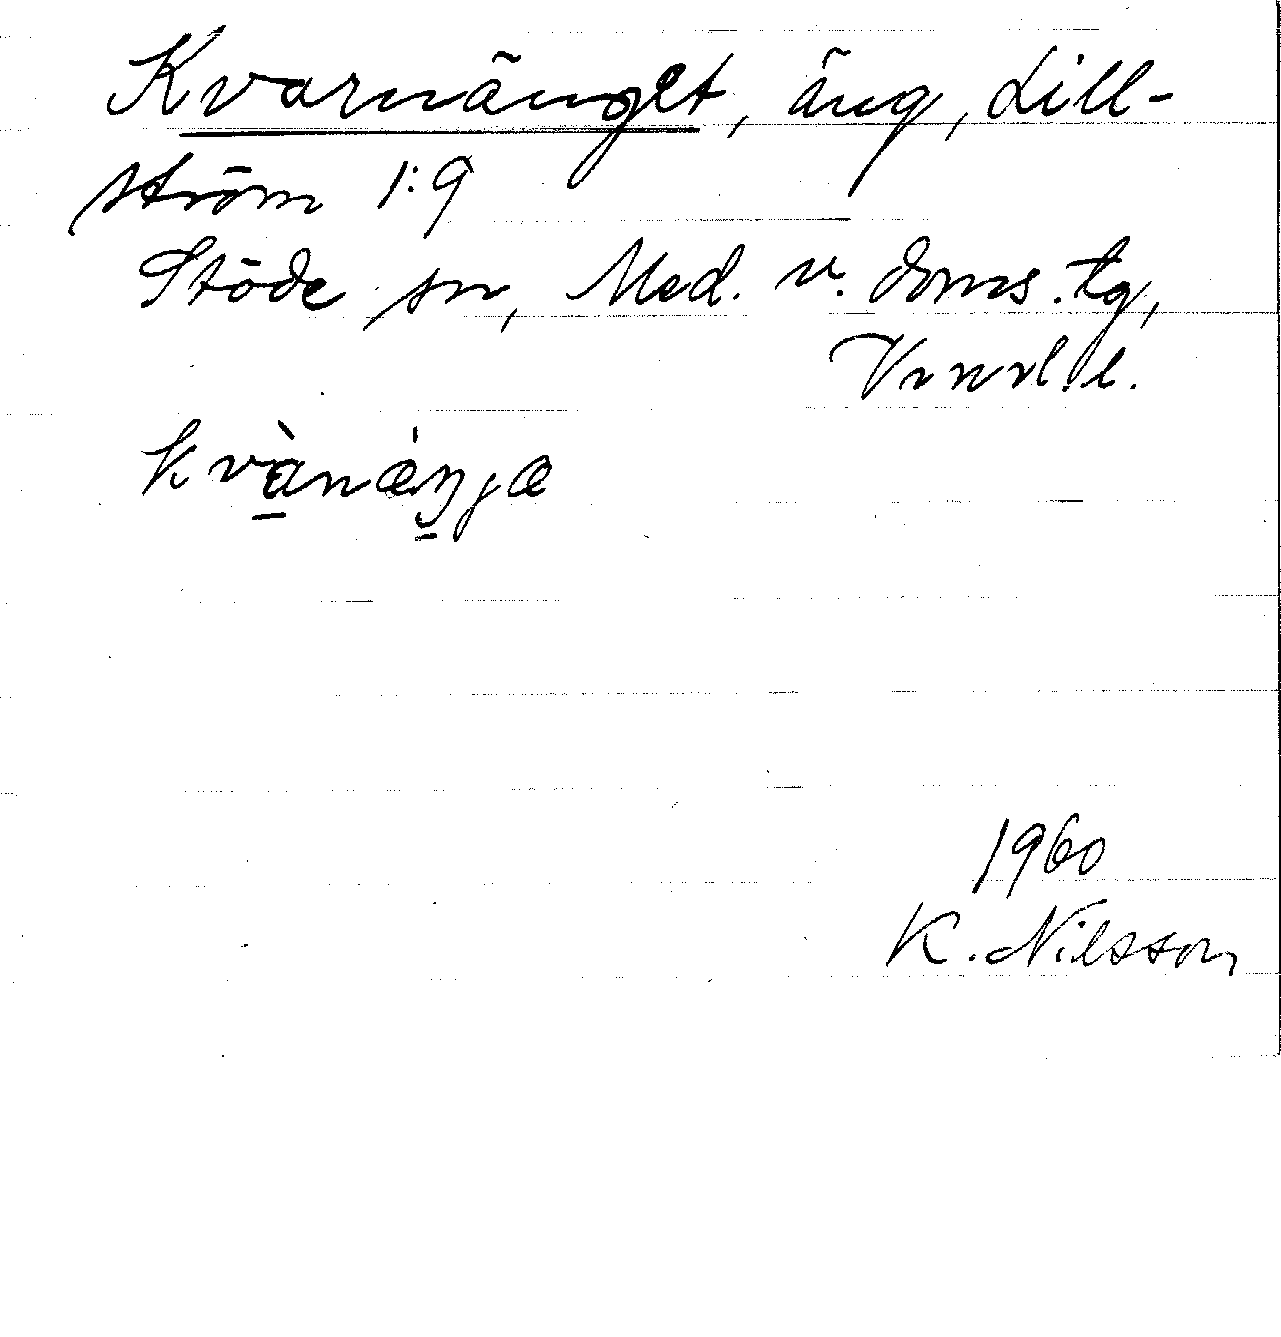 Kvarnänget, äng, Lill-
ström 1:9
Stöde sn, Med. v. doms.tg,
Vrnrl. l.
kvànæ̀ŋjæ
1960
K. Nilsson